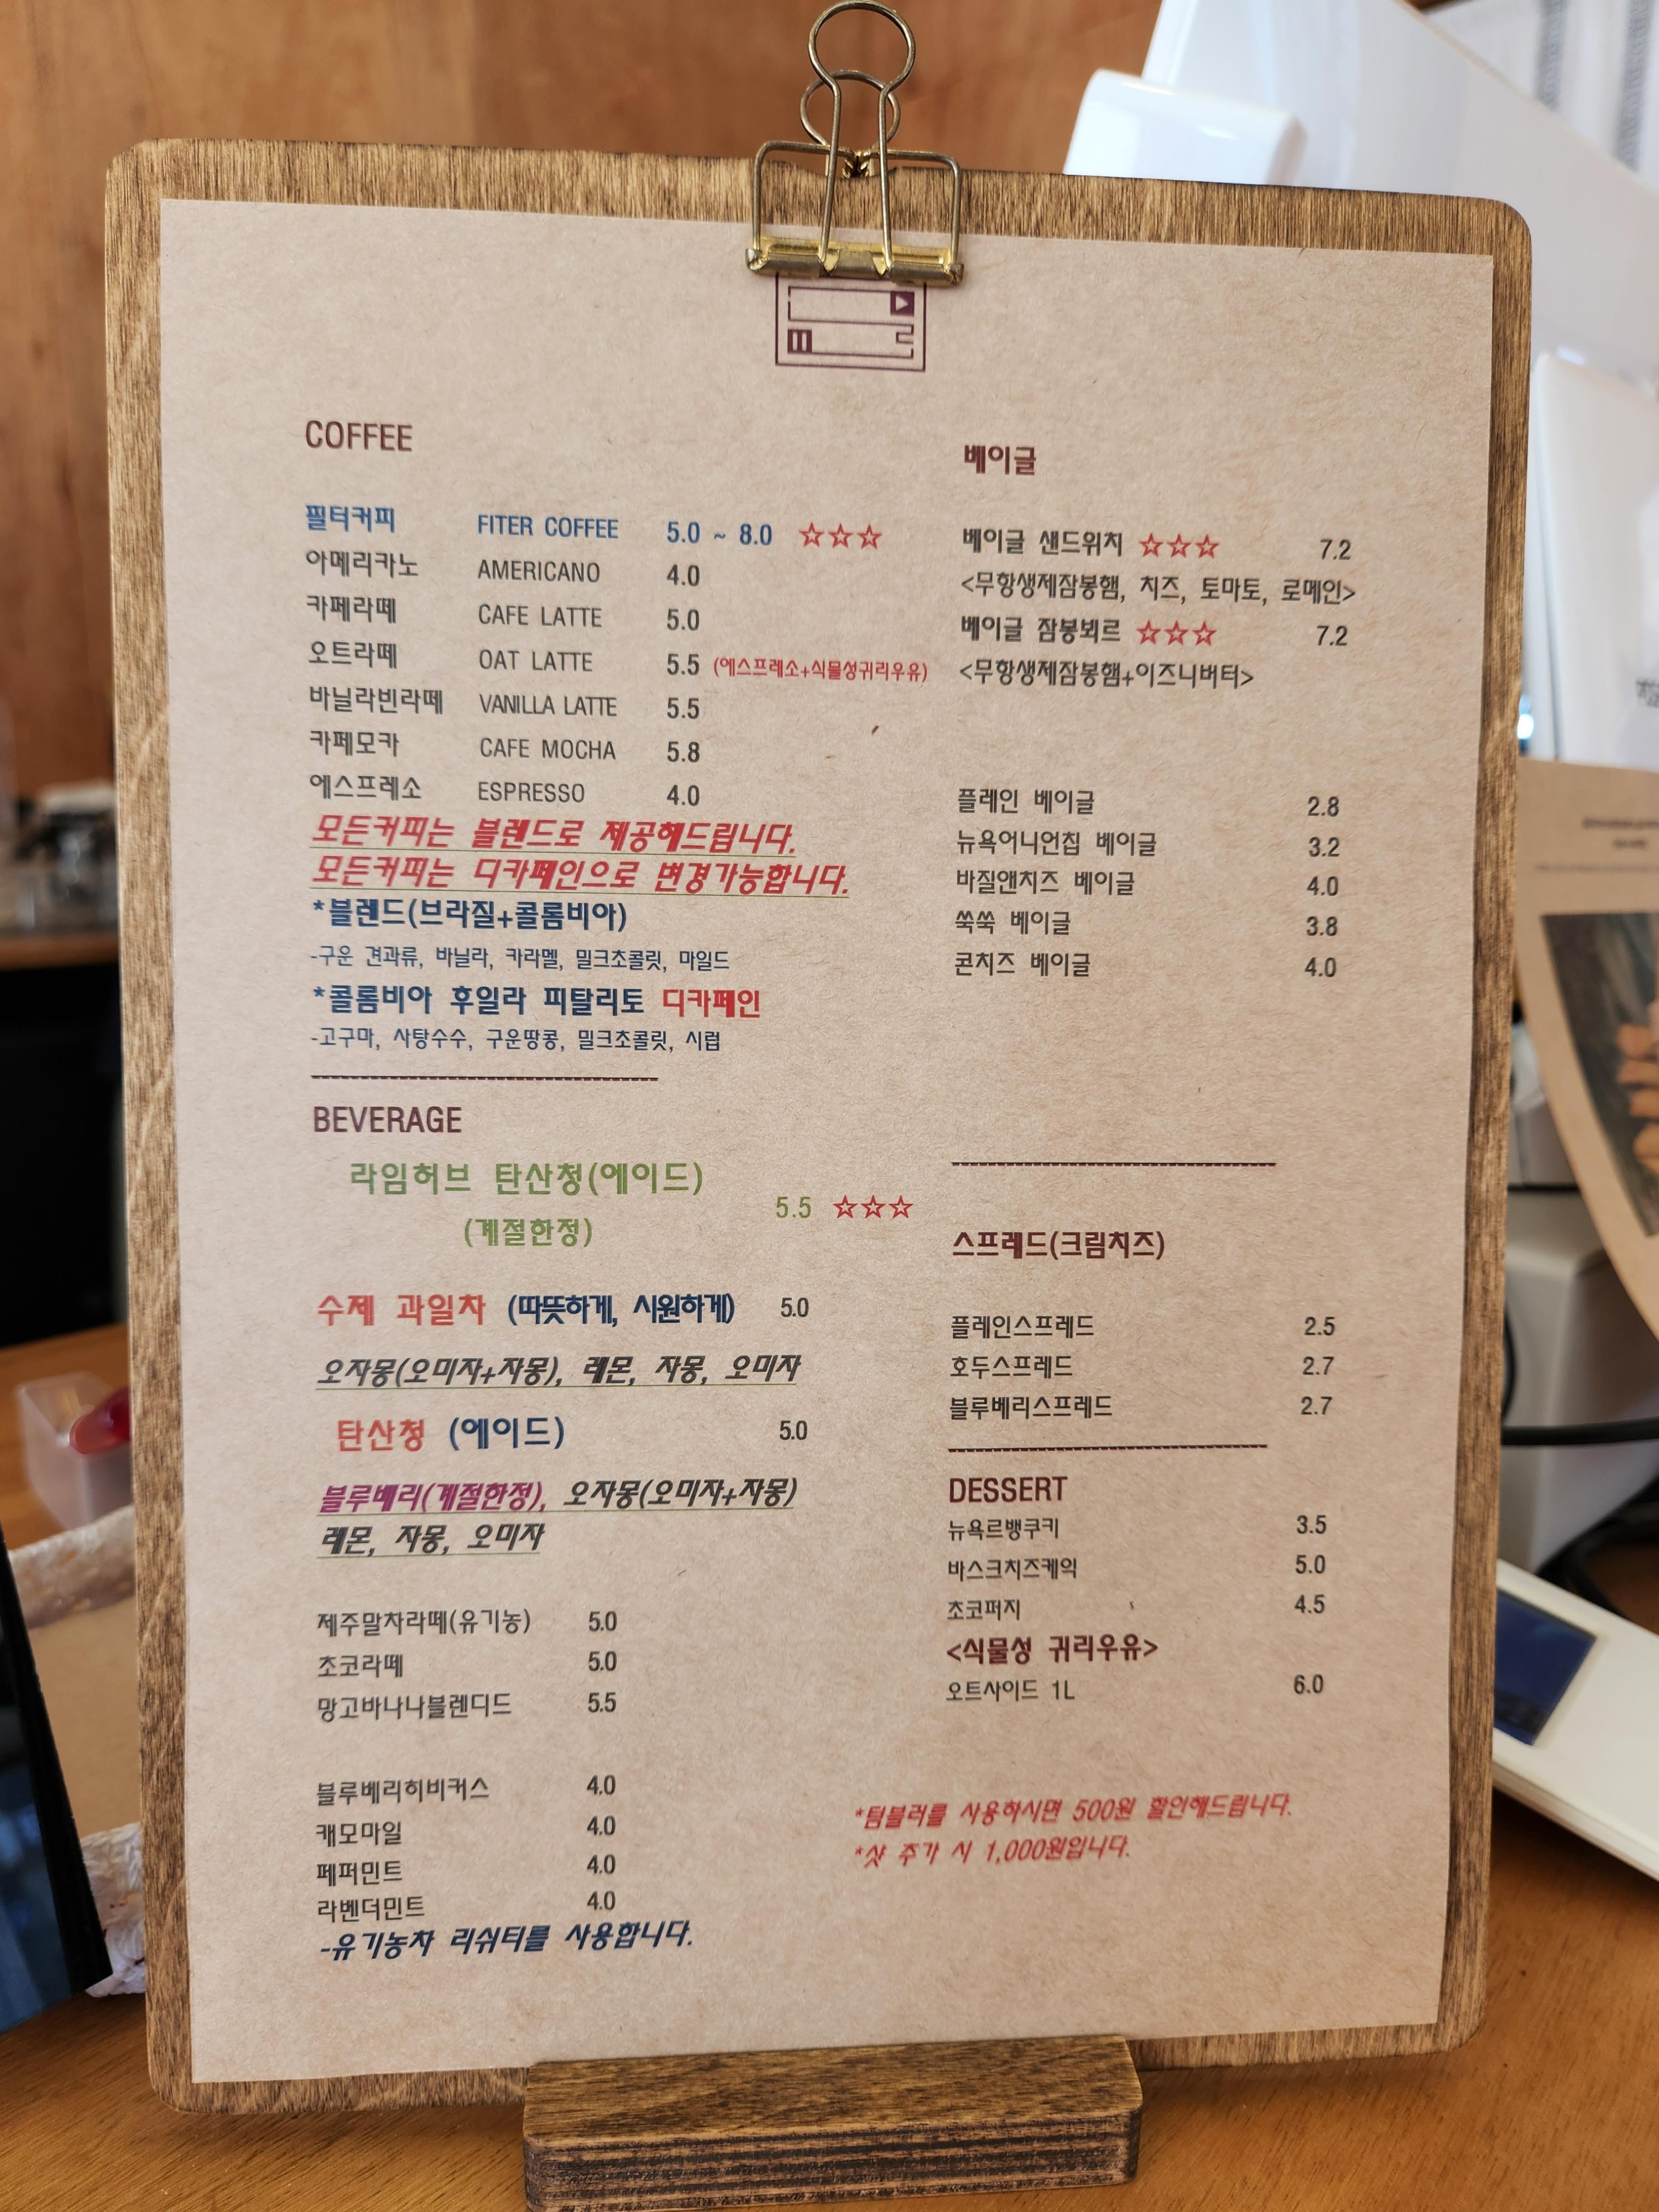 COFFEE
필터커피 FITER COFFEE 5.0 ~ 8.0 ☆☆☆
아메리카노 AMERICANO 4.0
카페라떼 CAFE LATTE 5.0
오트라떼 OAT LATTE 5.5 (에스프레소+식물성귀리우유)
바닐라빈라떼 VANILLA LATTE 5.5
카페모카 CAFE MOCHA 5.8
에스프레소 ESPRESSO 4.0
모든커피는 블렌드로 제공해드립니다.
모든커피는 디카페인으로 변경가능합니다.
*블렌드(브라질+콜롬비아)
-구운 견과류, 바닐라, 카라멜, 밀크초콜릿, 마일드
*콜롬비아 후일라 피탈리토 디카페인
-고구마, 사탕수수, 구운땅콩, 밀크초콜릿, 시럽
BEVERAGE
라임허브 탄산청(에이드)
(계절한정) 5.5 ☆☆☆
수제 과일차 (따뜻하게, 시원하게) 5.0
오자몽(오미자+자몽), 레몬, 자몽, 오미자
탄산청 (에이드) 5.0
블루베리(계절한정), 오자몽(오미자+자몽)
레몬, 자몽, 오미자
제주말차라떼(유기농) 5.0
초코라떼 5.0
망고바나나블렌디드 5.5
블루베리히비커스 4.0
캐모마일 4.0
페퍼민트 4.0
라벤더민트 4.0
-유기농차 리쉬티를 사용합니다.
베이글
베이글 샌드위치 ☆☆☆ 7.2
<무항생제잠봉햄, 치즈, 토마토, 로메인>
베이글 잠봉뵈르 ☆☆☆ 7.2
<무항생제잠봉햄+이즈니버터>
플레인 베이글 2.8
뉴욕어니언칩 베이글 3.2
바질앤치즈 베이글 4.0
쑥쑥 베이글 3.8
콘치즈 베이글 4.0
스프레드(크림치즈)
플레인스프레드 2.5
호두스프레드 2.7
블루베리스프레드 2.7
DESSERT
뉴욕르뱅쿠키 3.5
바스크치즈케익 5.0
초코퍼지 4.5
<식물성 귀리우유>
오트사이드 1L 6.0
*텀블러를 사용하시면 500원 할인해드립니다.
*샷 추가 시 1,000원입니다.